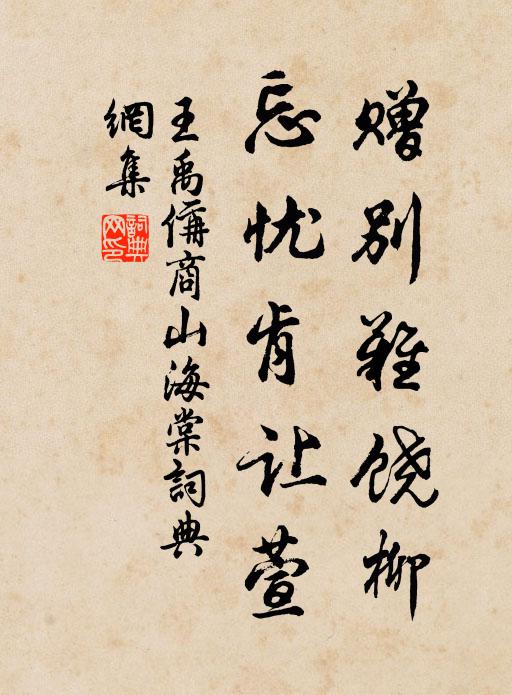 赠别难饶柳
忘忧肯让萱
王禹偁商山海棠詞典
網集
詞典网印